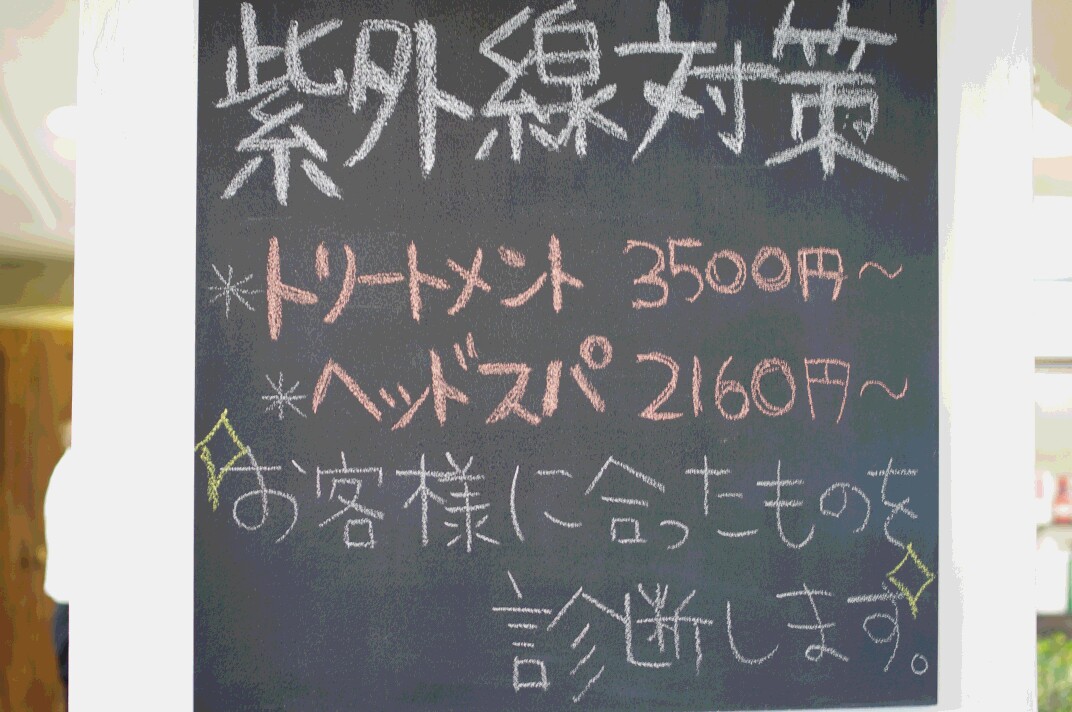 紫外線対策
*トリートメント 3500円~
*ヘッドスパ 2160円~
お客様に合ったものを
診断します。